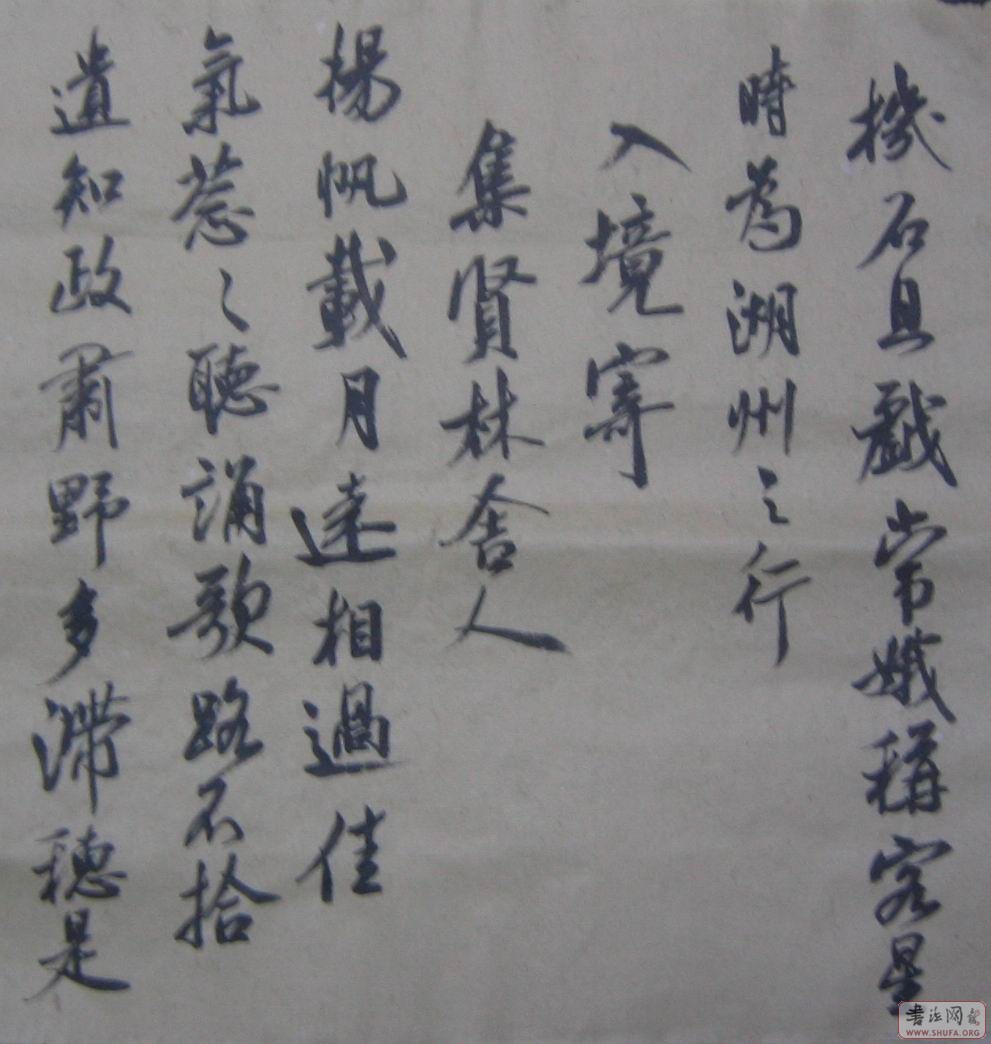 機石且戲常娥稱客星
時為湖州之行
入境寄
集賢林舍人
揚帆載月遠相過佳
氣葱〻聽誦歌路不拾
遺知政肅野多滯穗是
書法网
WWW.SHUFA.ORG